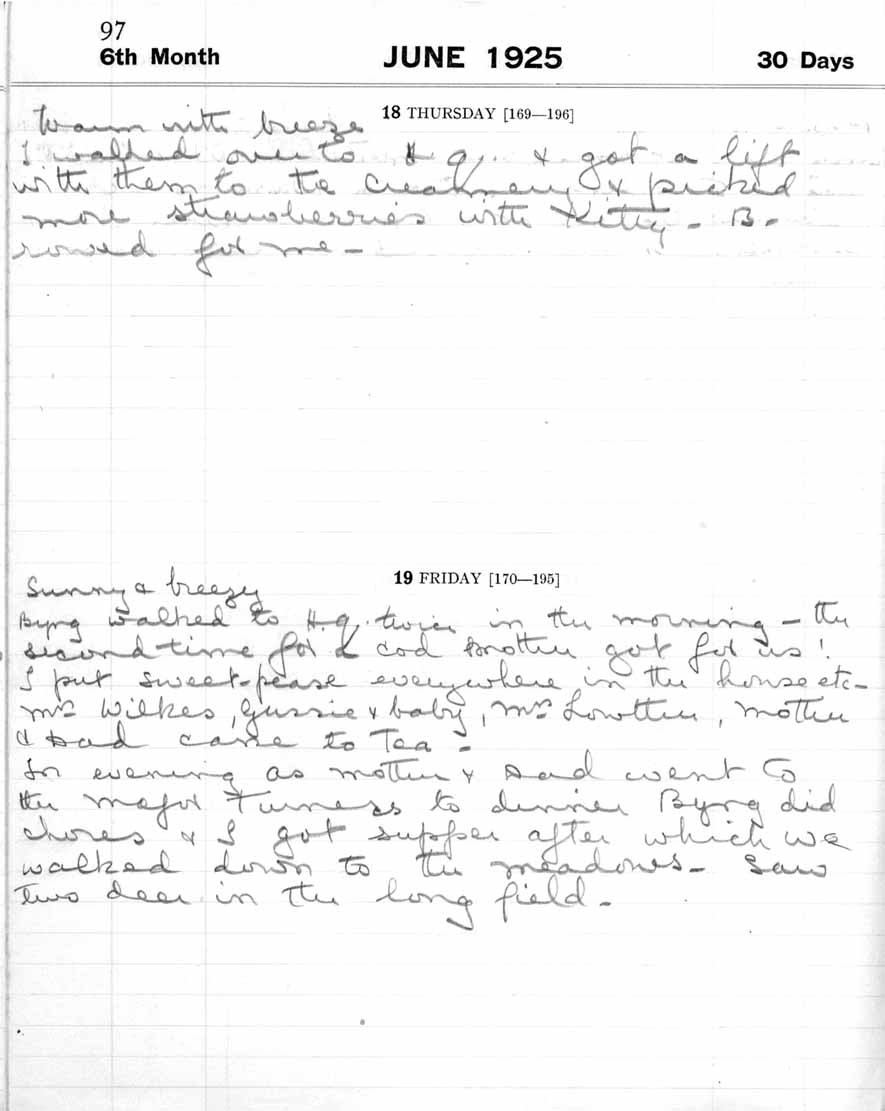 97
6th Month JUNE 1925 30 Days
18 THURSDAY [169—196]
Warm with breeze
I walked over to H q. & got a lift
with them to the creamery & picked
more strawberries with Kitty - B.
rowed for me -
19 FRIDAY [170—195]
Sunny & breezy
Byng walked to H.q. twice in the morning - the
second time for a cod Mother got for us!
I put sweet-pease everywhere in the house etc-
Mrs Wilkes, Gussie & baby, Mrs Lowther, Mother
& Dad came to Tea -
In evening as Mother & Dad went to
the Major Turness to dinner Byng did
chores & I got supper after which we
walked down to the meadows - Saw
two deer in the long field -